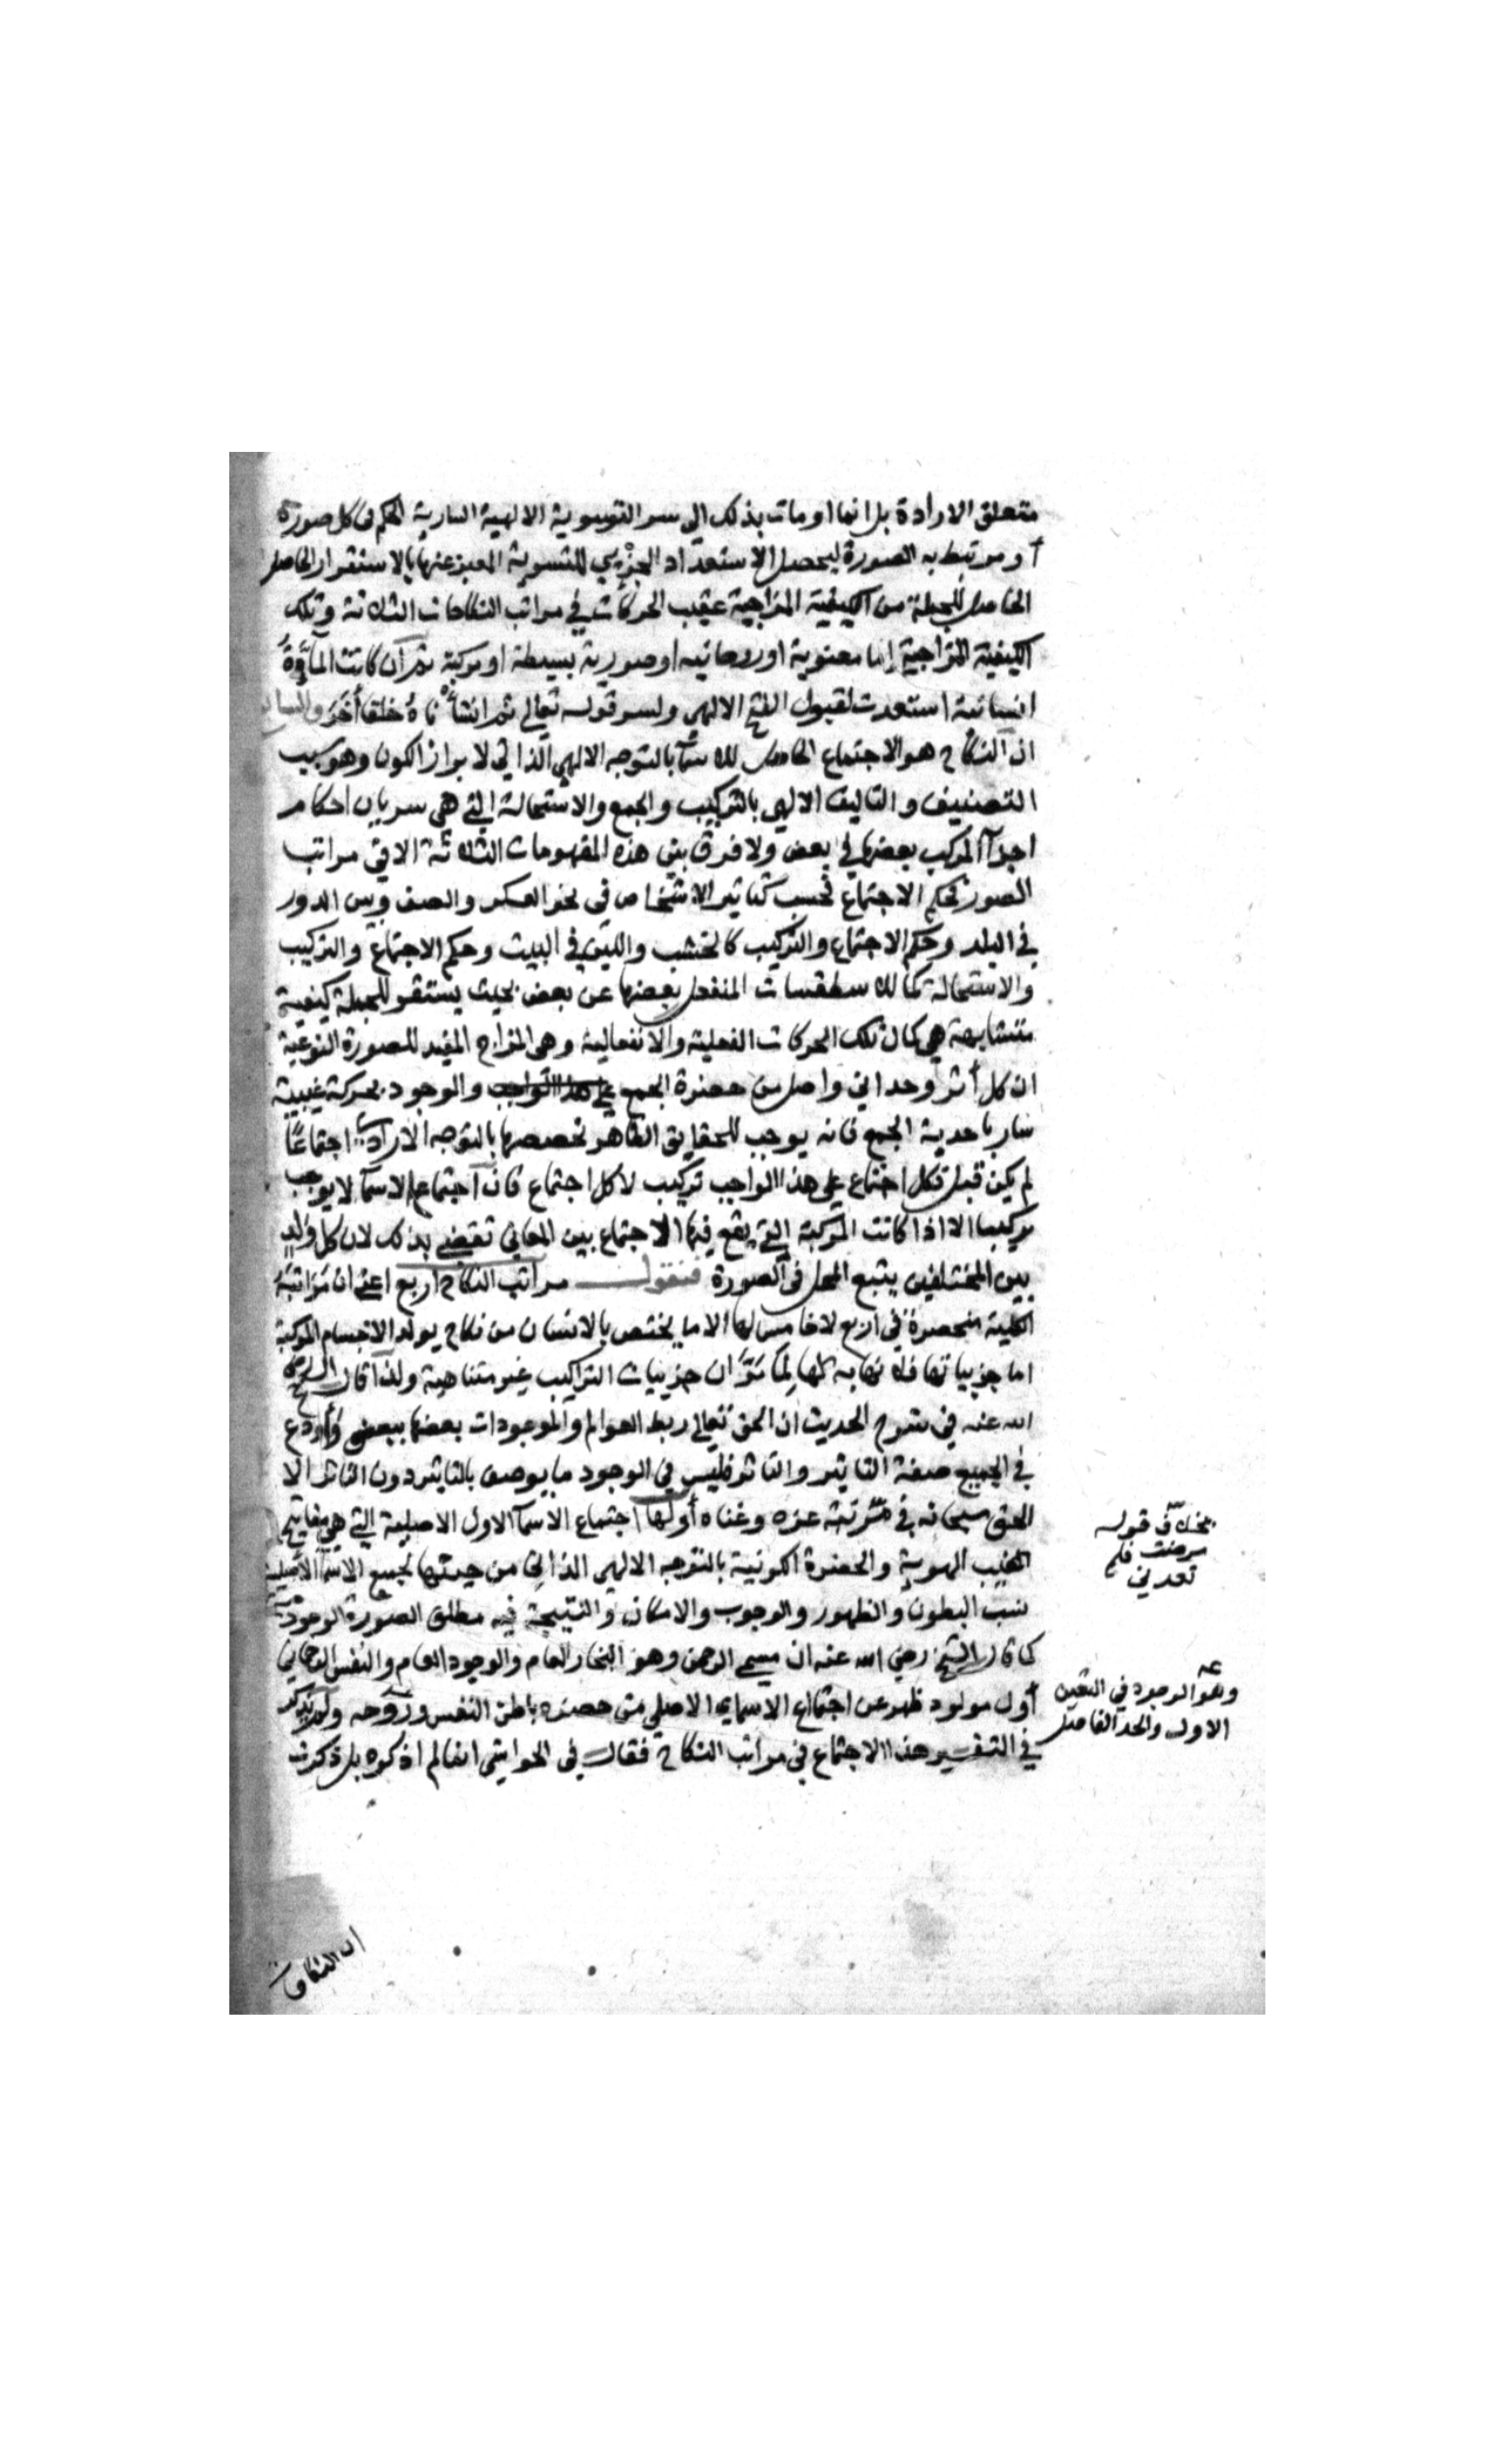 متعلق الارادة بل انما اومات بذلك الى سر التسوية الالهية السارية الحكم فى كل صورة
او مرتبط به الصورة ليحصل الاستعداد الجزءي للتسوية المعبر عنها بالاستقرار الحاصل
الحاصل للجملة من الكيفية المزاجية عقيب الحركات في مراتب النكاحات الثلاثة وتلك
الكيفية المزاجية إما معنوية او روحانيه او صورية بسيطة او مركبة ثم ان كانت المادة
انسانية استعدت لقبول النفخ الالهي ولسر قوله تعالى ثم انشاناه خلقا أخر
ان النكاح هو الاجتماع الحاصل للاسمآ بالتوجه الالهي الذاتي لابراز الكون وهو سبب
التصنيف والتاليف الالهي بالتركيب والجمع والاستحالة التي هى سريان احكام
اجزآ المركب بعضها في بعض ولا فرق بين هذه المفهومات الثلاثة الا في مراتب
الصور فحكم الاجتماع فحسب كتاثير الاشخاص فى نحو العسكر والصف وبين الدور
في البلد وحكم الاجتماع والتركيب كالخشب واللبن في البيت وحكم الاجتماع والتركيب
والاستحالة كالاسطقسات المنفعل بعضها عن بعض بحيث يستقر للجملة كيفية
متشابهة هي كمال تلك الحركات الفعلية والانفعالية وهى المزاج المفيد للصورة النوعية
ان كل أثر وحداني واصل من حضرة الجمع على هذا الواجب والوجود بحركة غيبية
سار باحدية الجمع فانه يوجب للحقايق الظاهر تخصصها بالتوجه الارادي اجتماعًا
لم يكن قبل فكل اجتماع على هذا الواجب تركيب لا كل اجتماع فان اجتماع الاسمآ لا يوجب
تركيبا الا اذا كانت المركبة التي يقع فيها الاجتماع بين المعاني تقتضي بذلك لان كل ولد
بين المختلفين يتبع المحل فى الصورة فنقول مراتب النكاح اربع اعني ان مراتبه
الكلية منحصرة في اربع لا خامس لها الا ما يختص بالانسان من نكاح يولد الاجسام المركبة
اما جزيياتها فلا نهاية لها لِمَا مَرَّ ان جزييات التراكيب غير متناهية ولذا قال الشيخ رضى
الله عنه في شرح الحديث ان الحق تعالى ربط العوالم والموجودات بعضها ببعض وأودع
في الجميع صفة التاثير والتاثر فليس في الوجود ما يوصف بالتاثير دون التاثر الا
الحق سبحانه في مرتبة عزه وغناه أولها اجتماع الاسمآ الاول الاصلية التي هي مفاتيح
الغيب الهوية والحضرة الكونية بالتوجه الالهي الذاتي من حيثها لجميع الاسمآ الاصلية
نسب البطون والظهور والوجوب والامكان والنتيجة فيه مطلق الصورة الوجودية
كما قال الشيخ رضي الله عنه ان مسمى الرحمن وهو البخار العام والوجود العام والنفس الرحماني
أول مولود ظهر عن اجتماع الاسماى الاصلي من حضرة باطن النفس وروحه ولم يذكر
في التفسير هذا الاجتماع في مراتب النكاح فقال في الحواشى انما لم اذكره بل ذكرت
بخلاف قوله
مرضت فلم
تعدني
وهو الوجود في التعين
الاول والحد الفاصل